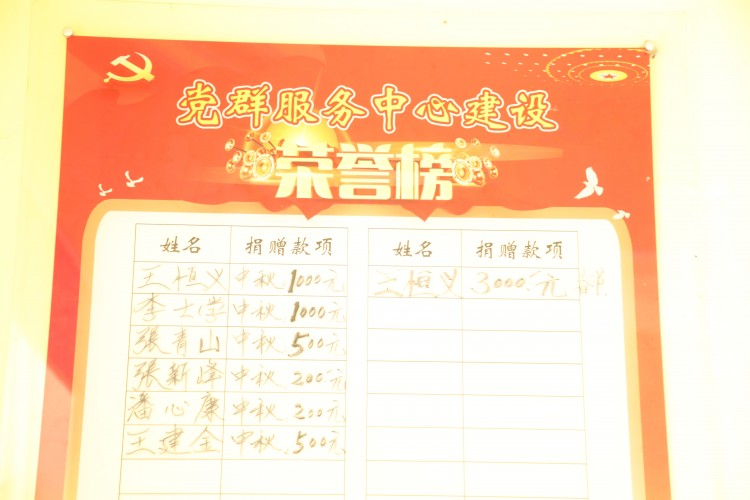 党群服务中心建设
荣誉榜
姓名 捐赠款项 姓名 捐赠款项
王恒义 中秋 1000元 王恒义 3000元
李士学 中秋 1000元
張青山 中秋 500元
張新峰 中秋 200元
潘心康 中秋 200元
王建全 中秋 500元